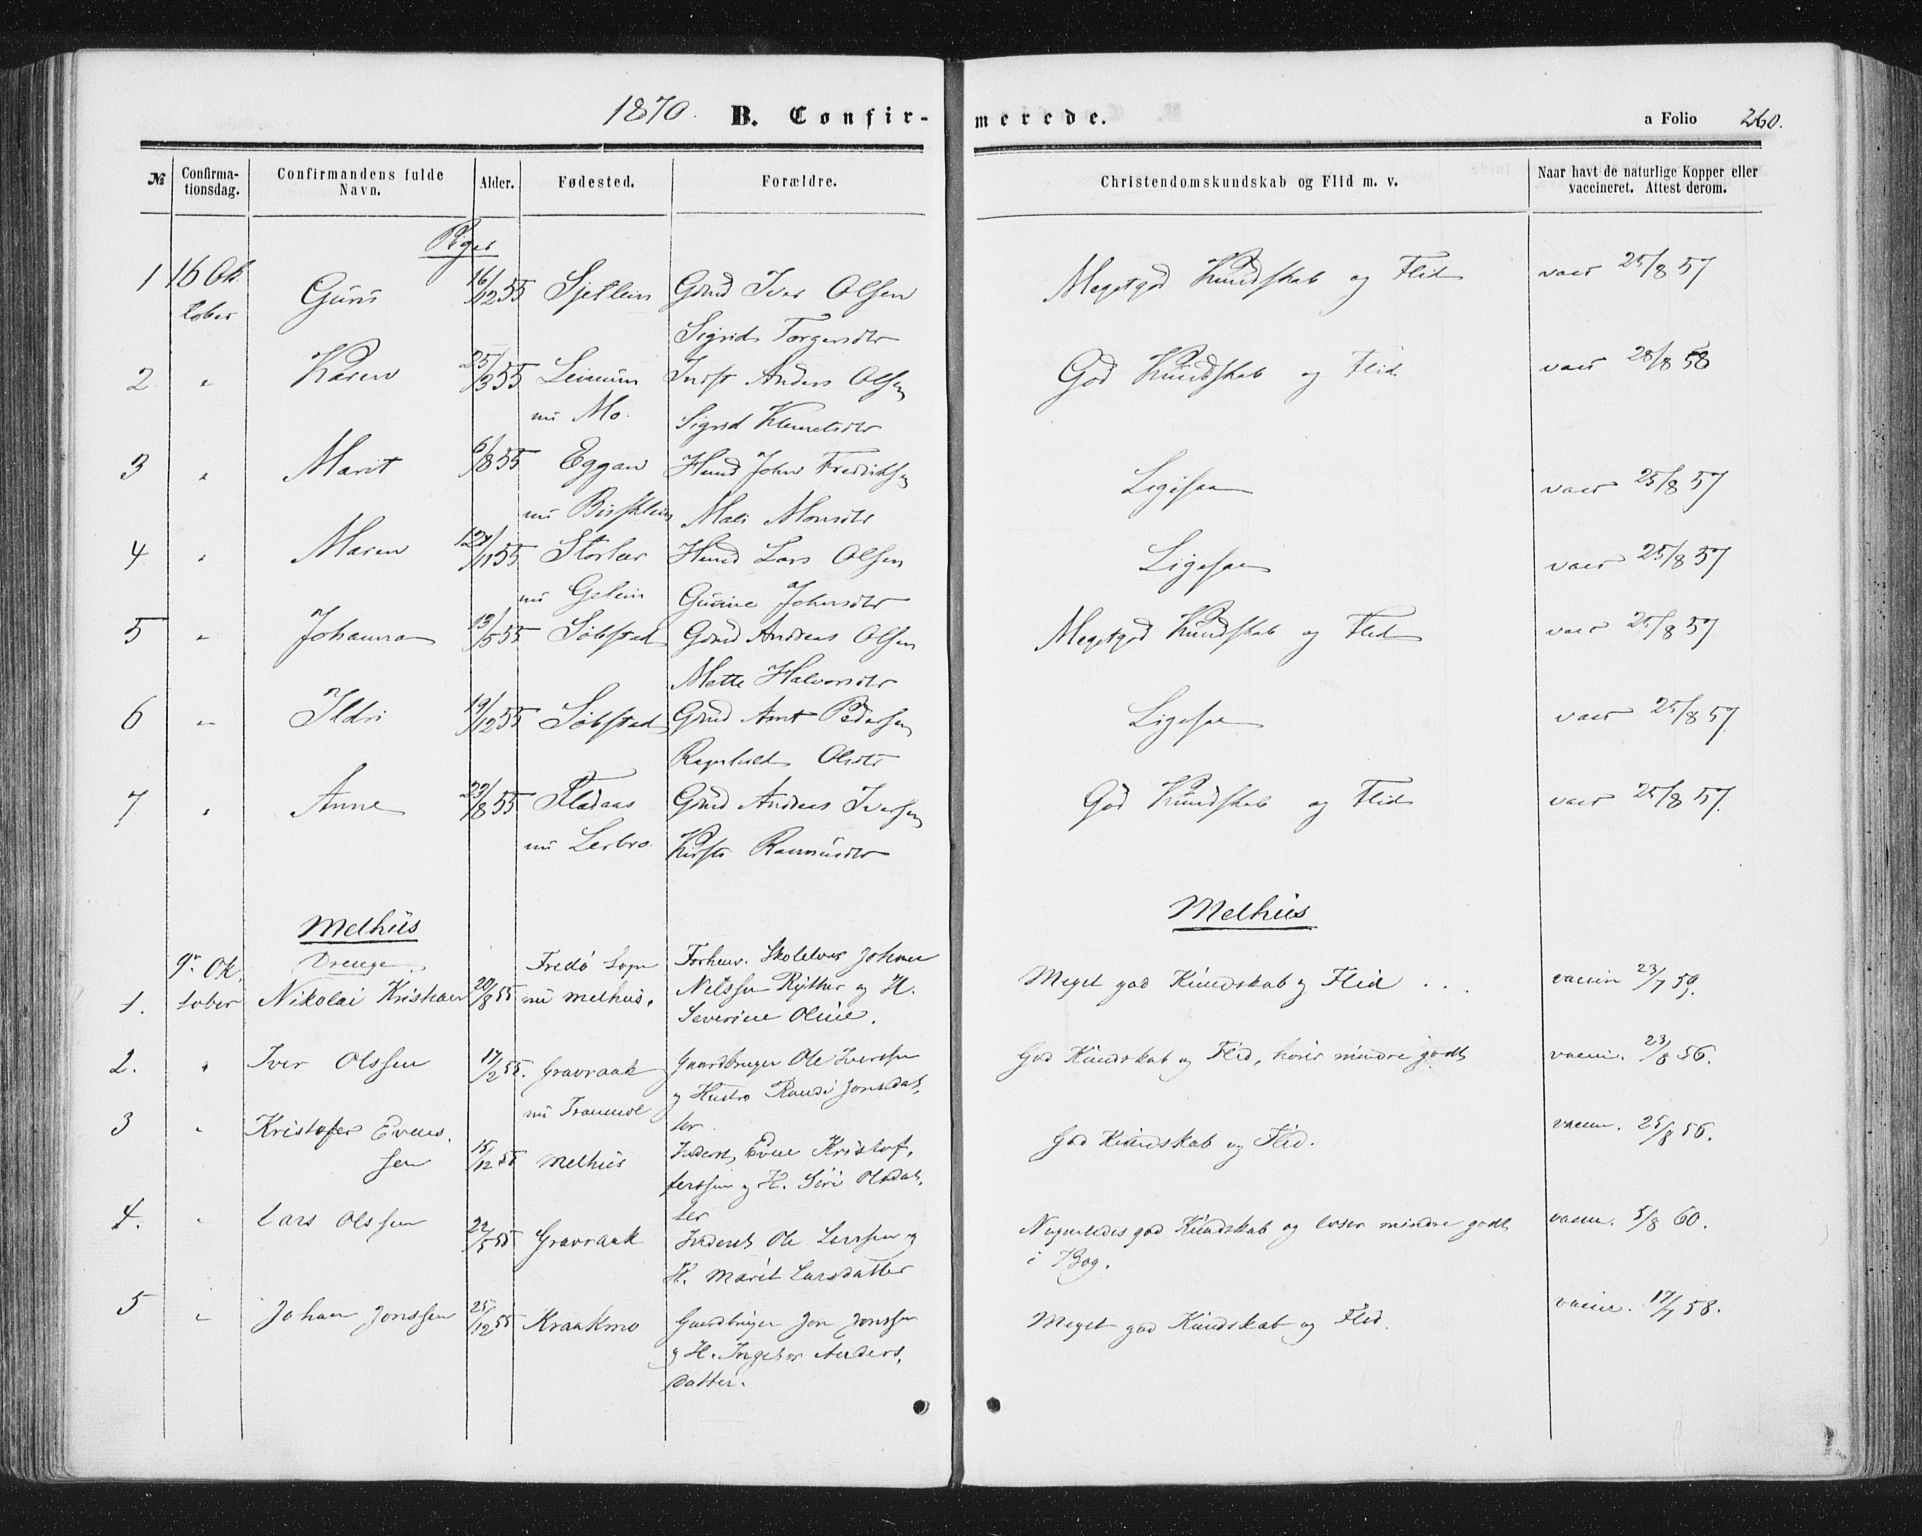 1870. B. Confir-merede. a Folio 260.
№ Confirma-tionsdag. Confirmandens fulde Navn. Alder. Fødested. Forældre. Christendomskundskab og Flid m. v. Naar havt de naturlige Kopper eller vaccineret. Attest derom.
Piger
1 16 Ok Guri 16/12 55 Sjetlein Grud Iver Olsen Megetgod Kundskab og Flid vacc 25/8 57
tober Sigrid Torgersdtr
2 " Karen 25/3 55 Leinum Indst Anders Olsen God Kundskab og Flid vacc 28/8 58
nu Mo. Sigrid Klemetsdtr
3 " Marit 6/8 55 Eggan Hmd John Fredriksen Ligesaa vacc 25/8 57
nu Mali Monsdtr
4 " Maren /11 55 Storler Hmd Lars Olsen Ligesaa vacc 25/8 57
nu Gelein Johnsdtr
5 " Johanna 13/5 55 Søbstad Grd Andreas Olsen Megetgod Kundskab og Flid vacc 25/8 57
Mette Halvorsdtr
6 " Ildri 19/12 55 Søbstad Grd Arnt Pedersen Ligesaa vacc 25/8 57.
Ragnhild Olsdtr
7 " Anne 29/8 55 Fladaas Grd Andreas Iversen God Kundskab og Flid vacc 25/8 57.
nu Lerbro Rasmusdtr
Melhus Melhus
9r Ok, Drenge. Fredø Sogn Forhenv. Skolelær Johan
1. tober Nikolai Kristian 20/8 55 nu Melhus. Nilssen Rytter og H. Meget god Kundskab og Flid ... vaccin 23/7 59.
Severine Oline.
2. " Iver Olssen 17/2 55. Gravraak Gaardbruger Ole Iverssen God Kundskab og Flid, hører mindre godt vaccin. 23/8 56.
nu og Hustro Randi Jonsdat,
3 " Kristofer Evens, ter.
sen 15/12 55 Melhus Inderst, Even Kristof, God Kundskab og Flid. vaccin. 25/8 56.
ferssen og H. Siri Olsdat,
4. " Lars Olssen 22/5 55 Gravraak ter
Inderst Ole Larssen og Nogenledes god Kundskab og læser mindre godt vaccin. 5/8 60.
H. Marit Larsdatter i Bog.
5 " Johan Jonssen 25/12 55 Kraakmo Gaardbruger Jon Jonssen Meget god Kundskab og Flid. vaccin. 17/7 58.
og H. Ingebor Anders,
datter.